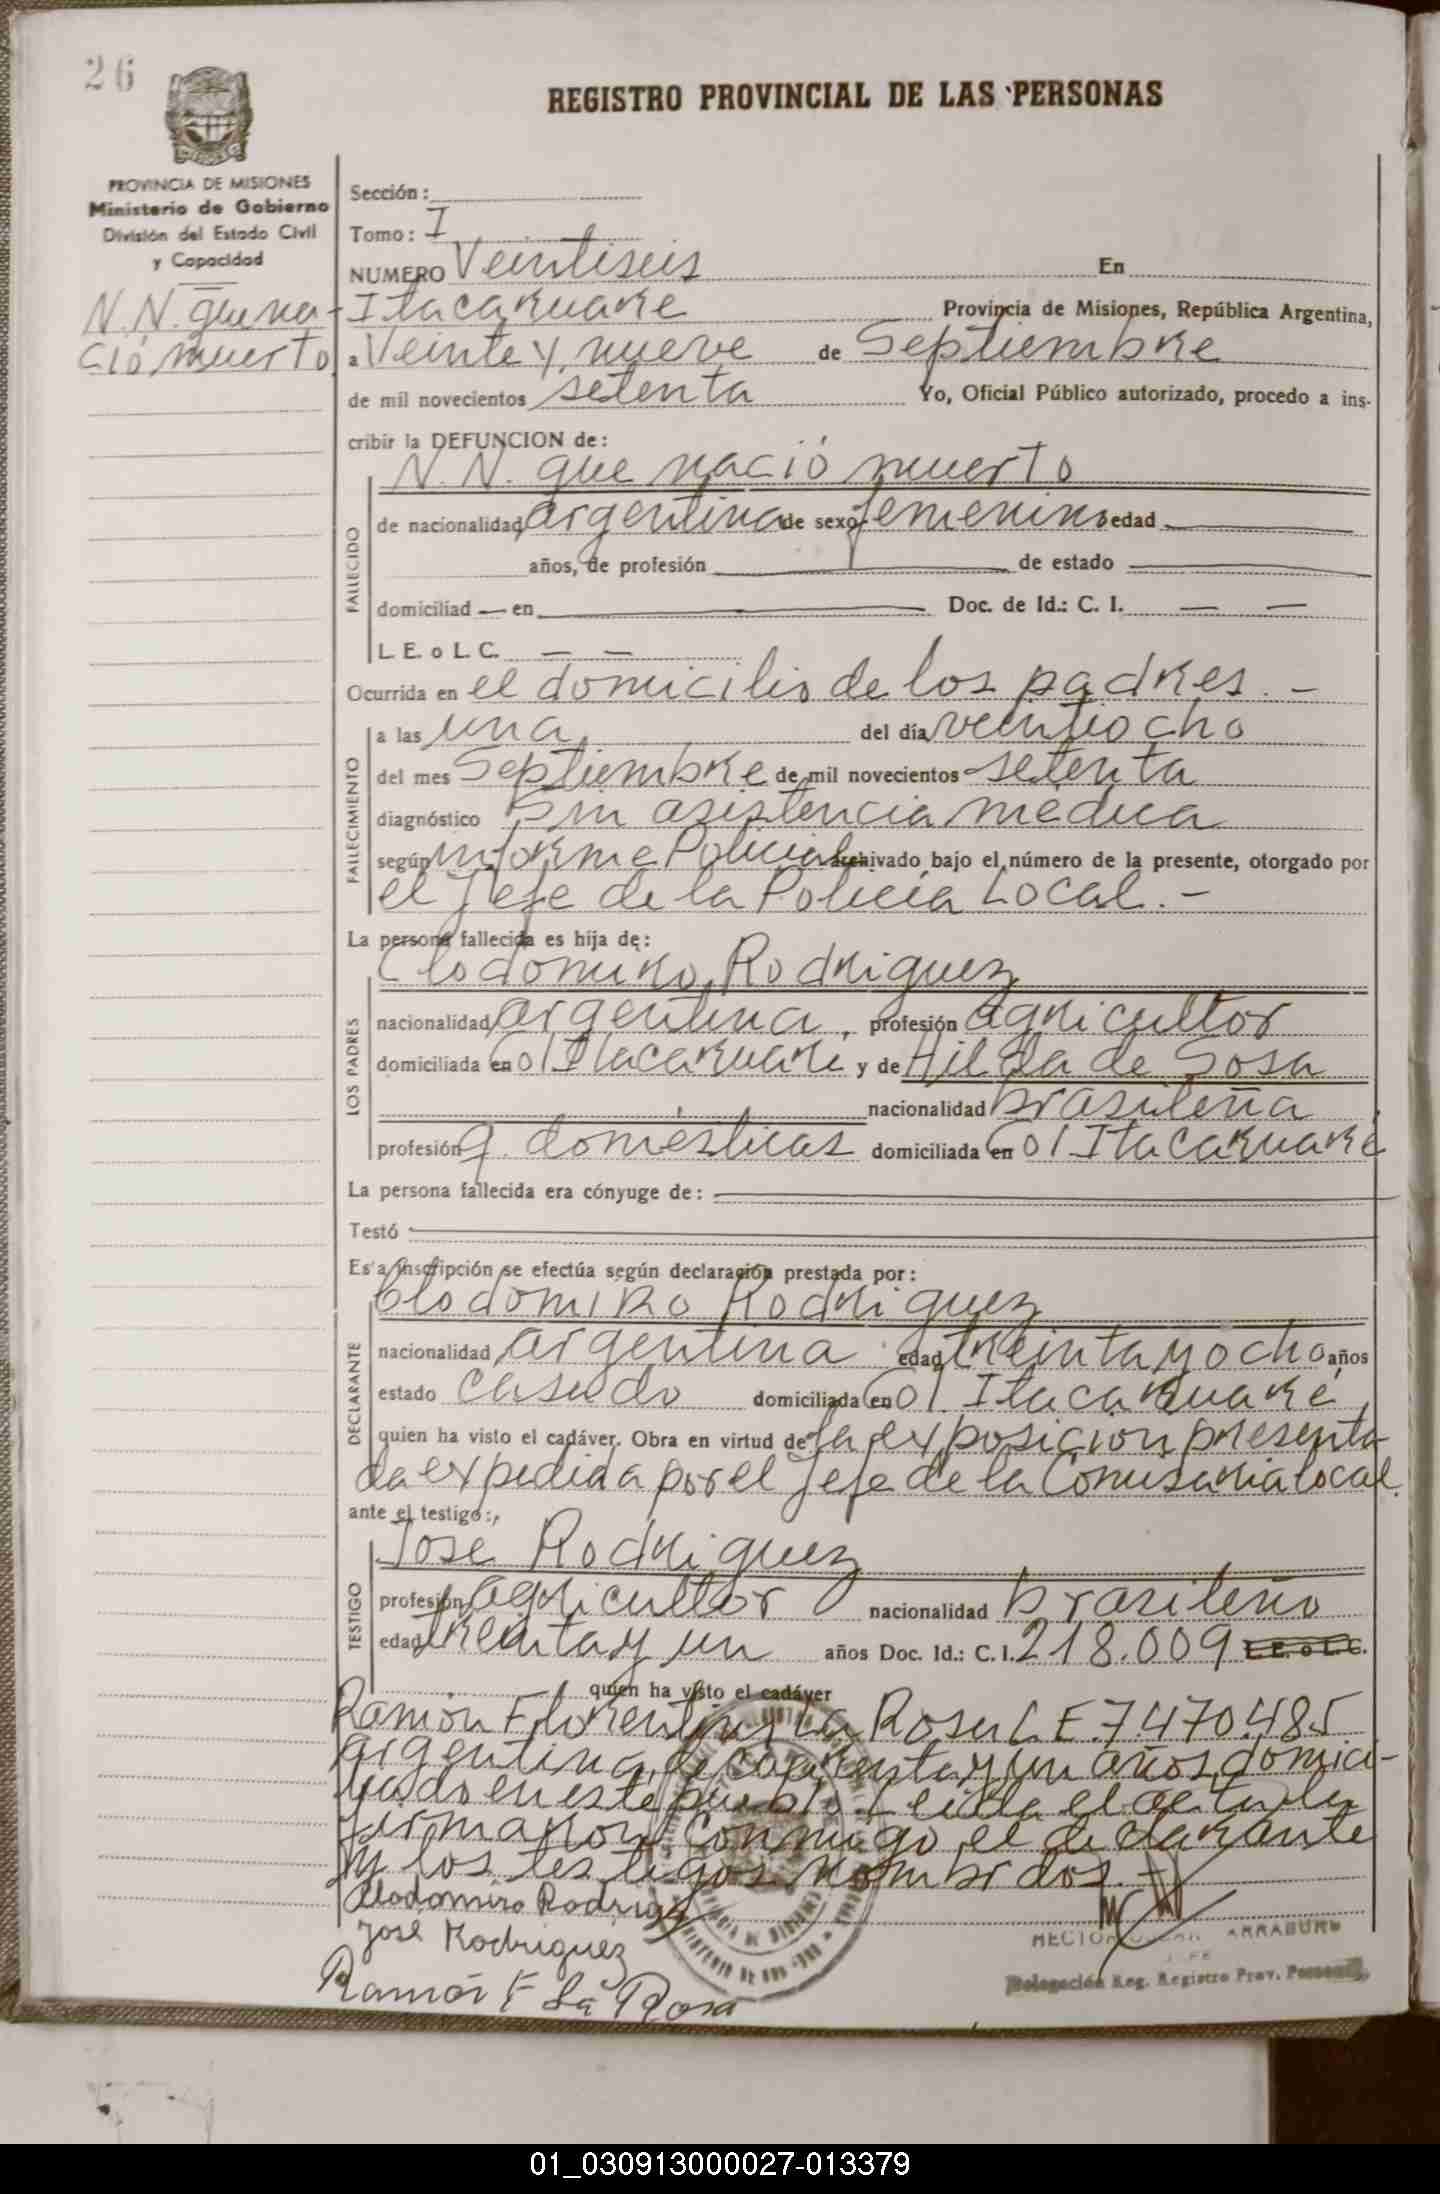 26
REGISTRO PROVINCIAL DE LAS PERSONAS
PROVINCIA DE MISIONES
Ministerio de Gobierno
División del Estado Civil
y Capacidad
N.N. que na-
ció muerto
Sección:
Tomo: I
NUMERO Veintiseis En
Itacaruare Provincia de Misiones, República Argentina,
a Veinte y nueve de Septiembre
de mil novecientos setenta Yo, Oficial Público autorizado, procedo a ins-
cribir la DEFUNCION de:
N.N. que nació muerto
FALLECIDO
de nacionalidad argentina de sexo femenino edad
años, de profesión de estado
domiciliad — en Doc. de Id.: C. I. — —
L. E. o L. C. — —
Ocurrida en el domicilio de los padres. -
FALLECIMIENTO
a las una del día veintiocho
del mes Septiembre de mil novecientos setenta
diagnóstico Sin asistencia médica
según informe Policial archivado bajo el número de la presente, otorgado por
el Jefe de la Policía Local. -
La persona fallecida es hija de:
LOS PADRES
Clodomiro Rodriguez
nacionalidad argentina, profesión agricultor
domiciliada en Col Itacaruaré y de Hilda de Sosa
nacionalidad brasileña
profesión q. domésticas domiciliada en Col Itacaruaré
La persona fallecida era cónyuge de:
Testó
Esta inscripción se efectúa según declaración prestada por:
DECLARANTE
Clodomiro Rodriguez
nacionalidad argentina edad treinta y ocho años
estado casado domiciliada en Col. Itacaruaré
quien ha visto el cadáver. Obra en virtud de la exposición presenta-
da expedida por el Jefe de la Comisaria local.
ante el testigo:
TESTIGO
José Rodriguez
profesión agricultor nacionalidad brasileño
edad treinta y un años Doc. Id.: C. I. 218.009 L.E. o L.C.
quien ha visto el cadáver
Ramón Florentin La Rosa L.E. 7470.485
argentina, de cuarenta y un años, domici-
liado en este pueblo. Leida el acta la
firmaron conmigo el declarante
y los testigos nombrados. -
Clodomiro Rodrig
José Rodriguez
Ramón F La Rosa
HECTOR ARRABURU
JEFE
Delegación Reg. Registro Prov. Personas
01_030913000027-013379